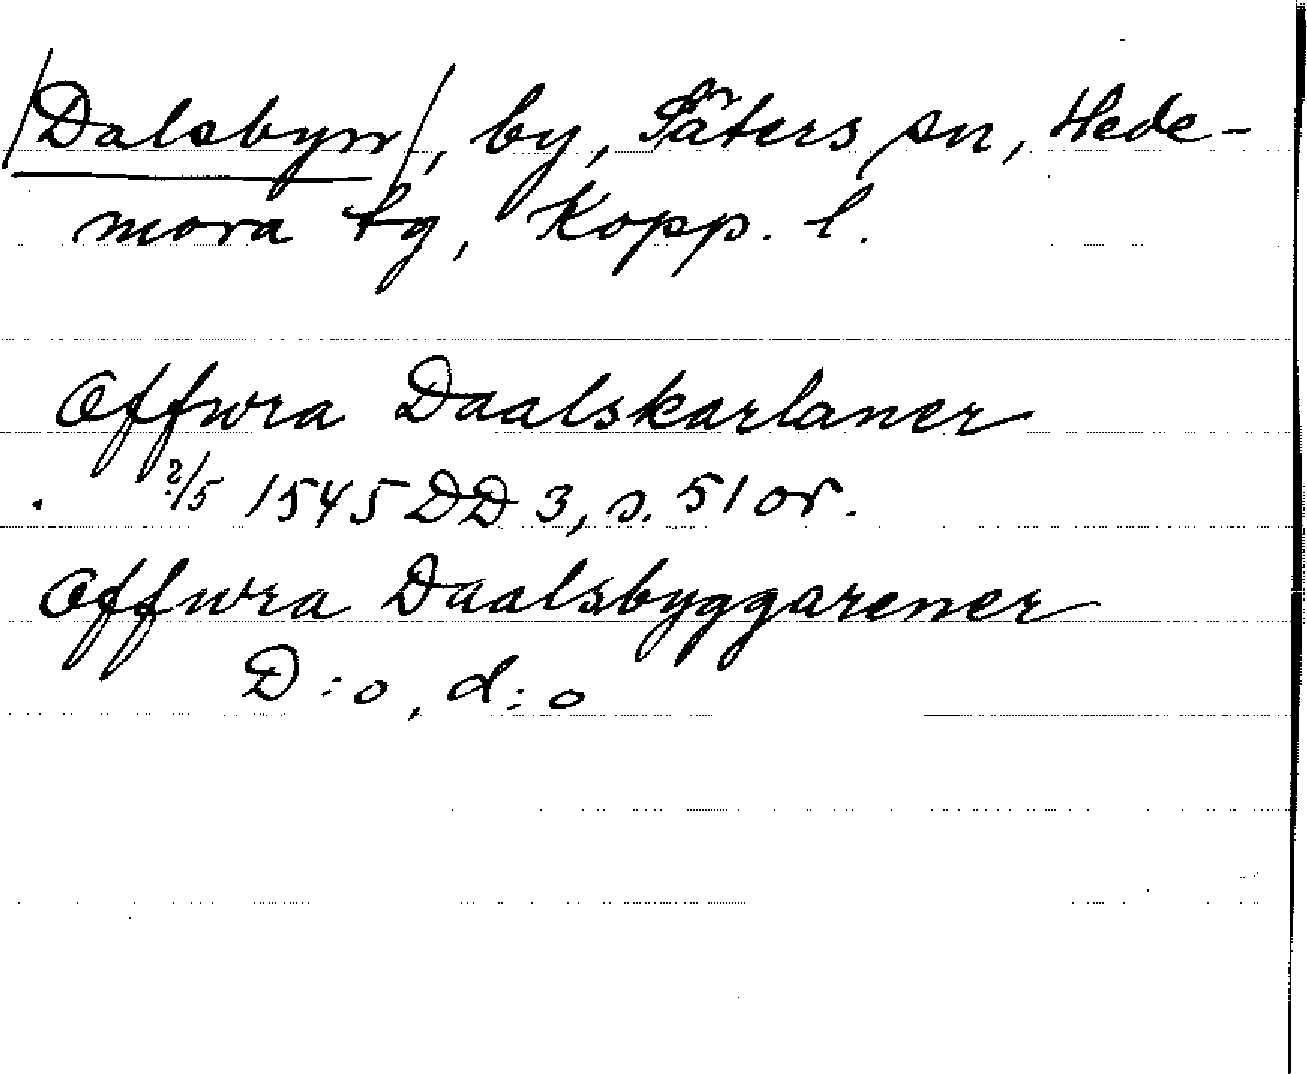 /Dalsbyn/, by, Säters sn, Hede-
mora tg, Kopp. l.
Offwra Daalskarlaner
?/5 1545 DD 3, s. 51 or.
Offwra Daalsbyggarener
D:o, d:o